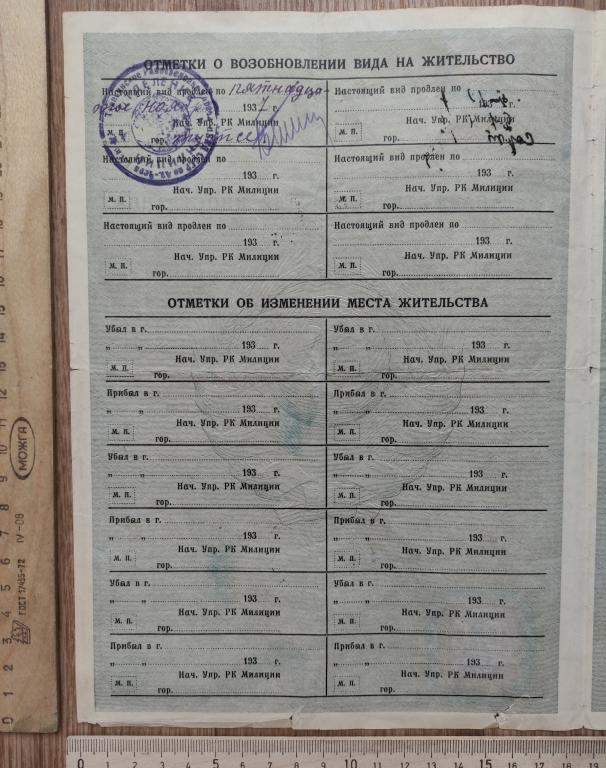 ОТМЕТКИ О ВОЗОБНОВЛЕНИИ ВИДА НА ЖИТЕЛЬСТВО
Настоящий вид продлен по пятнадца-
1937 г.
Нач. Упр. РК Милиции
М. П.
гор.
Настоящий вид продлен по
193 г.
Нач. Упр. РК Милиции
М. П.
гор.
Настоящий вид продлен по
193 г.
Нач. Упр. РК Милиции
М. П.
гор.
Настоящий вид продлен по
193 г.
Нач. Упр. РК Милиции
М. П.
гор.
Настоящий вид продлен по
193 г.
Нач. Упр. РК Милиции
М. П.
гор.
Настоящий вид продлен по
193 г.
Нач. Упр. РК Милиции
М. П.
гор.
ОТМЕТКИ ОБ ИЗМЕНЕНИИ МЕСТА ЖИТЕЛЬСТВА
Убыл в г.
„ „ 193 г.
Нач. Упр. РК Милиции
М. П.
гор.
Убыл в г.
„ „ 193 г.
Нач. Упр. РК Милиции
М. П.
гор.
Прибыл в г.
„ „ 193 г.
Нач. Упр. РК Милиции
М. П.
гор.
Прибыл в г.
„ „ 193 г.
Нач. Упр. РК Милиции
М. П.
гор.
Убыл в г.
„ „ 193 г.
Нач. Упр. РК Милиции
М. П.
гор.
Убыл в г.
„ „ 193 г.
Нач. Упр. РК Милиции
М. П.
гор.
Прибыл в г.
„ „ 193 г.
Нач. Упр. РК Милиции
М. П.
гор.
Прибыл в г.
„ „ 193 г.
Нач. Упр. РК Милиции
М. П.
гор.
Убыл в г.
„ „ 193 г.
Нач. Упр. РК Милиции
М. П.
гор.
Убыл в г.
„ „ 193 г.
Нач. Упр. РК Милиции
М. П.
гор.
Прибыл в г.
„ „ 193 г.
Нач. Упр. РК Милиции
М. П.
гор.
Прибыл в г.
„ „ 193 г.
Нач. Упр. РК Милиции
М. П.
гор.
МОЖГА
ГОСТ 17435-72 IV-08
0 1 2 3 4 5 6 7 8 9 10 11 12 13
0 1 2 3 4 5 6 7 8 9 10 11 12 13 14 15 16 17 18 19